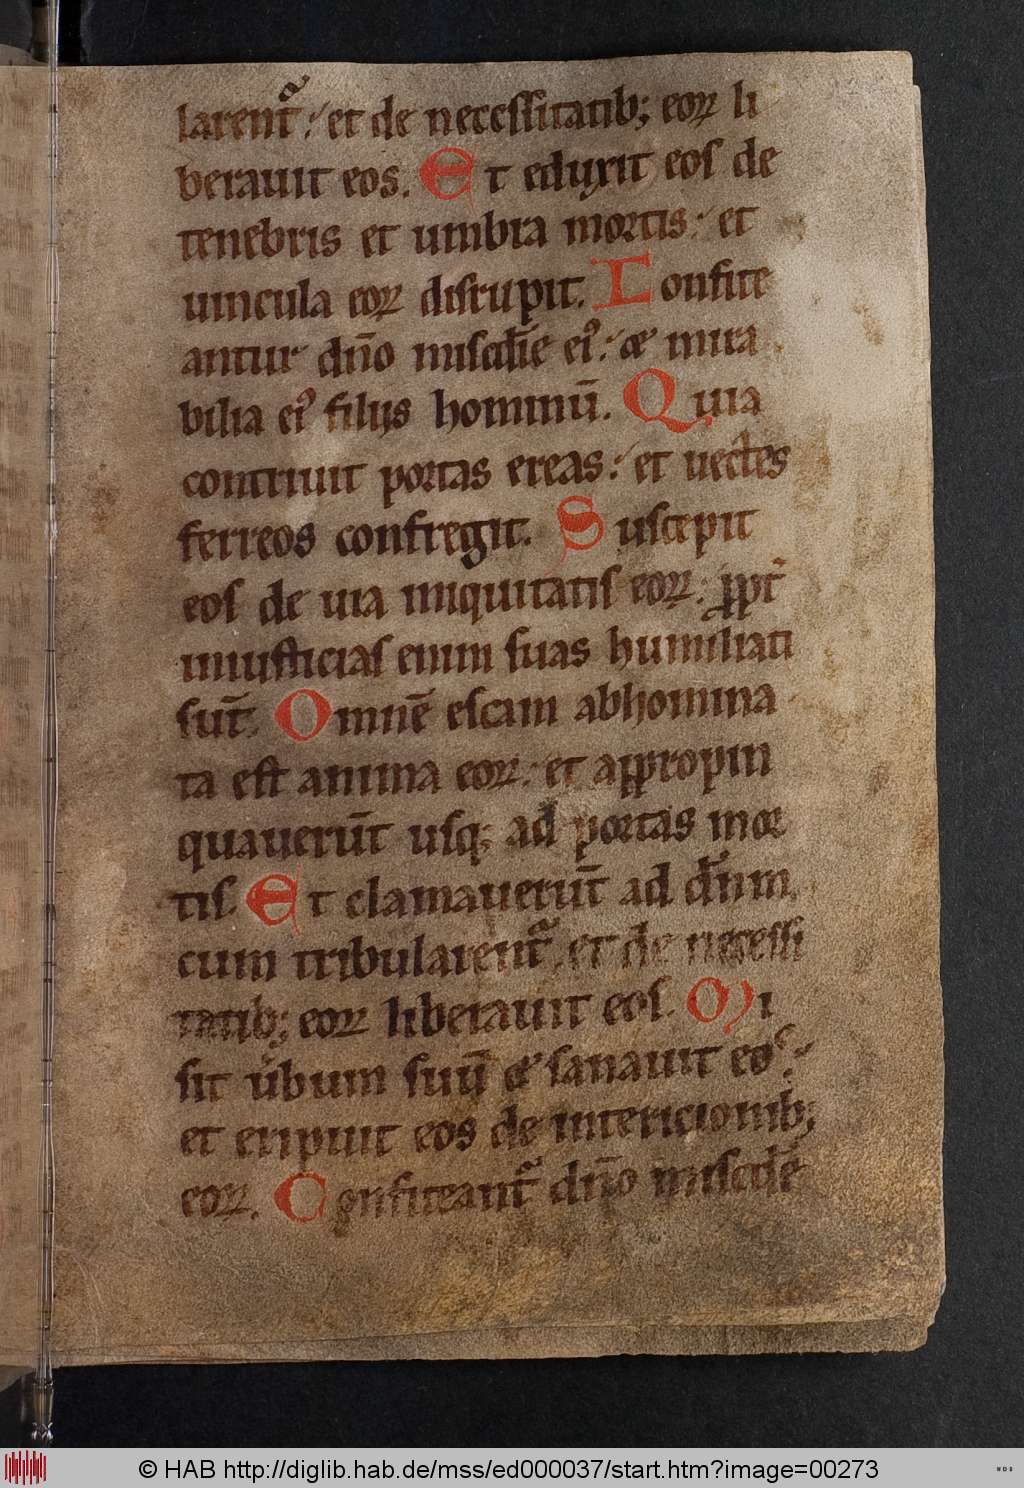 larent᷑ : et de necessitatib; eoꝝ li
berauit eos. Et eduxit eos de
tenebris et umbra mortis : et
uincula eoꝝ disrupit. Confite
antur dn̄o miscd̄ie eiꝰ : & mira
bilia eiꝰ filiis hominū. Quia
contriuit portas ereas : et uectes
ferreos confregit. Suscepit
eos de uia iniquitatis eoꝝ : ꝓpt᷑
iniusticias enim suas humiliati
sūt. Omnē escam abhomina
ta est anima eoꝝ : et appropin
quauerūt usq; ad portas mor
tis. Et clamauerūt ad dn̄m
cum tribularent᷑ , et de necessi
tatib; eoꝝ liberauit eos. Mi
sit u̅bum suū & sanauit eos :
et eripuit eos de intericionib;
eoꝝ. Confiteant᷑ dn̄o miscdē
© HAB http://diglib.hab.de/mss/ed000037/start.htm?image=00273